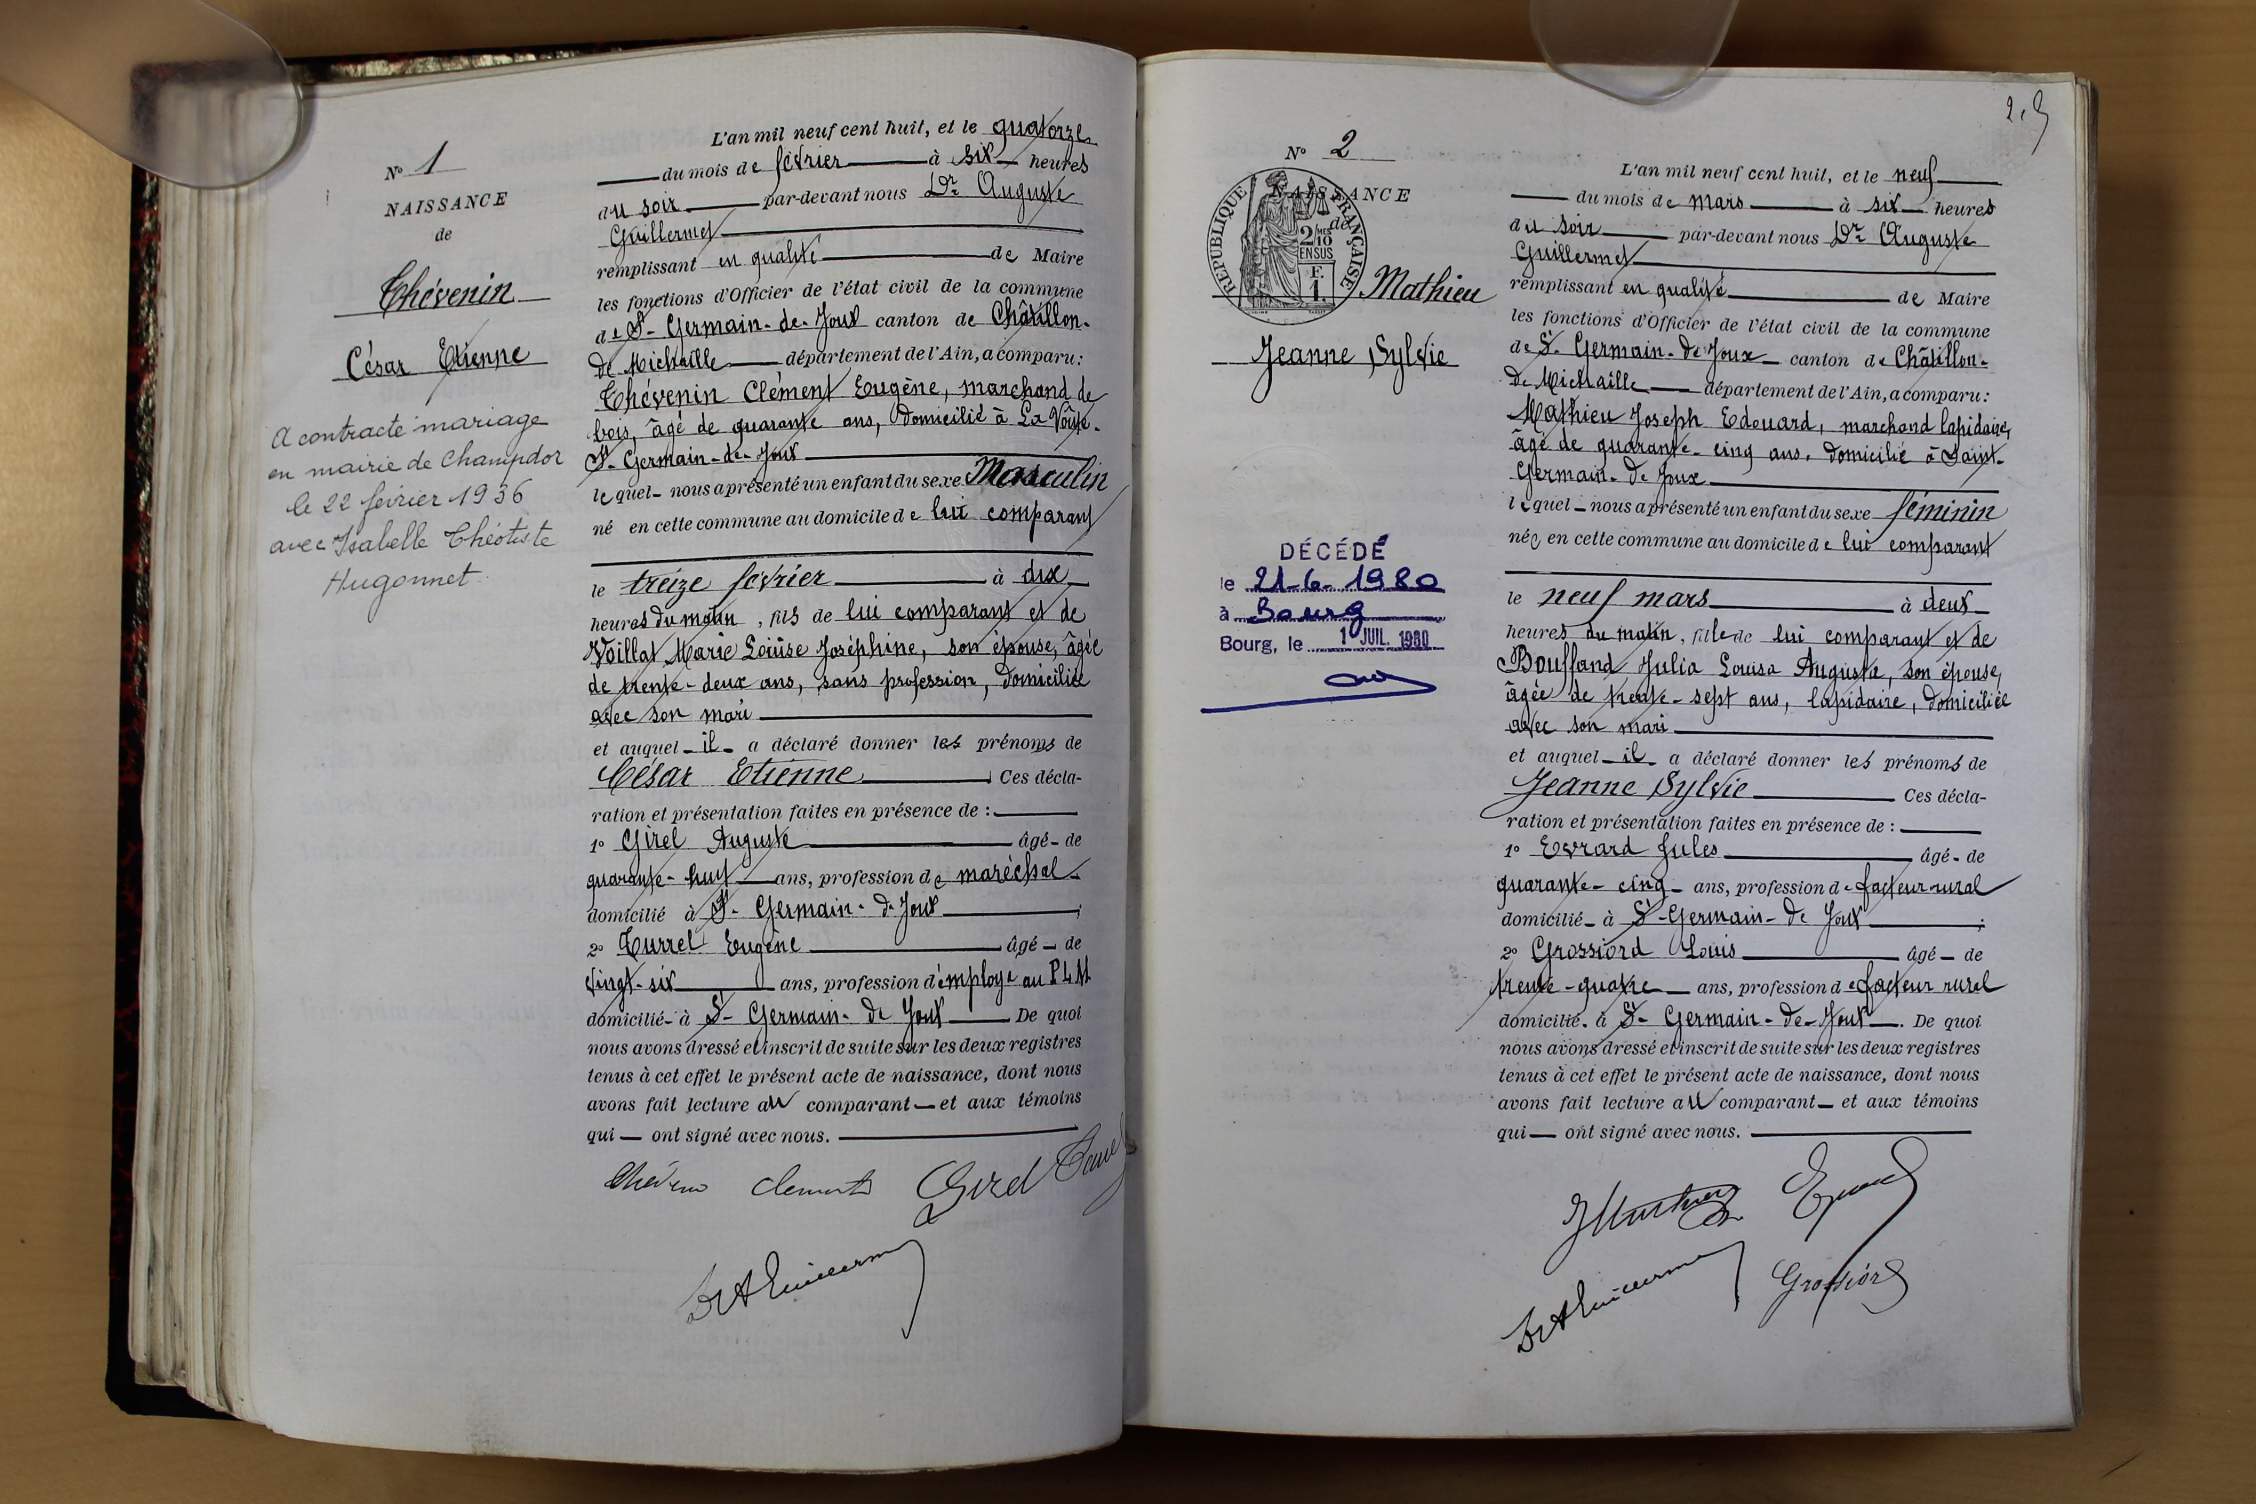 N° 1
NAISSANCE
de
Thévenin
César Etienne
A contracté mariage
en mairie de Champdor
le 22 février 1936
avec Isabelle Théotiste
Hugonnet
L'an mil neuf cent huit, et le quatorze
du mois de février à six heures
du soir par-devant nous Dr Auguste
Guillermet
remplissant en qualité de Maire
les fonctions d'Officier de l'état civil de la commune
de St-Germain-de-Joux canton de Châtillon-
de Michaille département de l'Ain, a comparu:
Thévenin Clément Eugène, marchand de
bois, âgé de quarante ans, domicilié à La Voûte-
St-Germain-de-Joux
lequel nous a présenté un enfant du sexe Masculin
né en cette commune au domicile de lui comparant
le treize février à dix
heures du matin, fils de lui comparant et de
Voillat Marie Louise Joséphine, son épouse, âgée
de trente-deux ans, sans profession, domiciliée
avec son mari
et auquel il a déclaré donner les prénoms de
César Etienne Ces décla-
ration et présentation faites en présence de :
1° Girel Auguste âgé de
quarante-huit ans, profession de maréchal
domicilié à St-Germain-de-Joux ;
2° Turrel Eugène âgé de
vingt-six ans, profession d'employé au PLM
domicilié à St-Germain-de Joux De quoi
nous avons dressé et inscrit de suite sur les deux registres
tenus à cet effet le présent acte de naissance, dont nous
avons fait lecture au comparant et aux témoins
qui ont signé avec nous.
Thévenin Clément Girel
Dr A Guillermet
2.
N° 2
NAISSANCE
de
RÉPUBLIQUE FRANÇAISE
2/10 MES
EN SUS
F.
1.
Mathieu
Jeanne Sylvie
DÉCÉDÉ
le 21-6-1980
à Bourg
Bourg, le 1 JUIL. 1980
L'an mil neuf cent huit, et le neuf
du mois de mars à six heures
du soir par-devant nous Dr Auguste
Guillermet
remplissant en qualité de Maire
les fonctions d'Officier de l'état civil de la commune
de St-Germain-de Joux canton de Châtillon-
de Michaille département de l'Ain, a comparu:
Mathieu Joseph Edouard, marchand lapidaire,
âgé de quarante-cinq ans, domicilié à Saint-
Germain-de Joux
lequel nous a présenté un enfant du sexe féminin
née en cette commune au domicile de lui comparant
le neuf mars à deux
heures du matin, fille de lui comparant et de
Bouffand Julia Louisa Augusta, son épouse,
âgée de trente-sept ans, lapidaire, domiciliée
avec son mari
et auquel il a déclaré donner les prénoms de
Jeanne Sylvie Ces décla-
ration et présentation faites en présence de :
1° Evrard Jules âgé de
quarante-cinq ans, profession de facteur rural
domicilié à St-Germain-de Joux ;
2° Grossiord Louis âgé de
trente-quatre ans, profession de facteur rural
domicilié à St-Germain-de-Joux. De quoi
nous avons dressé et inscrit de suite sur les deux registres
tenus à cet effet le présent acte de naissance, dont nous
avons fait lecture au comparant et aux témoins
qui ont signé avec nous.
J Mathieu Evrard
Dr A Guillermet Grossiord